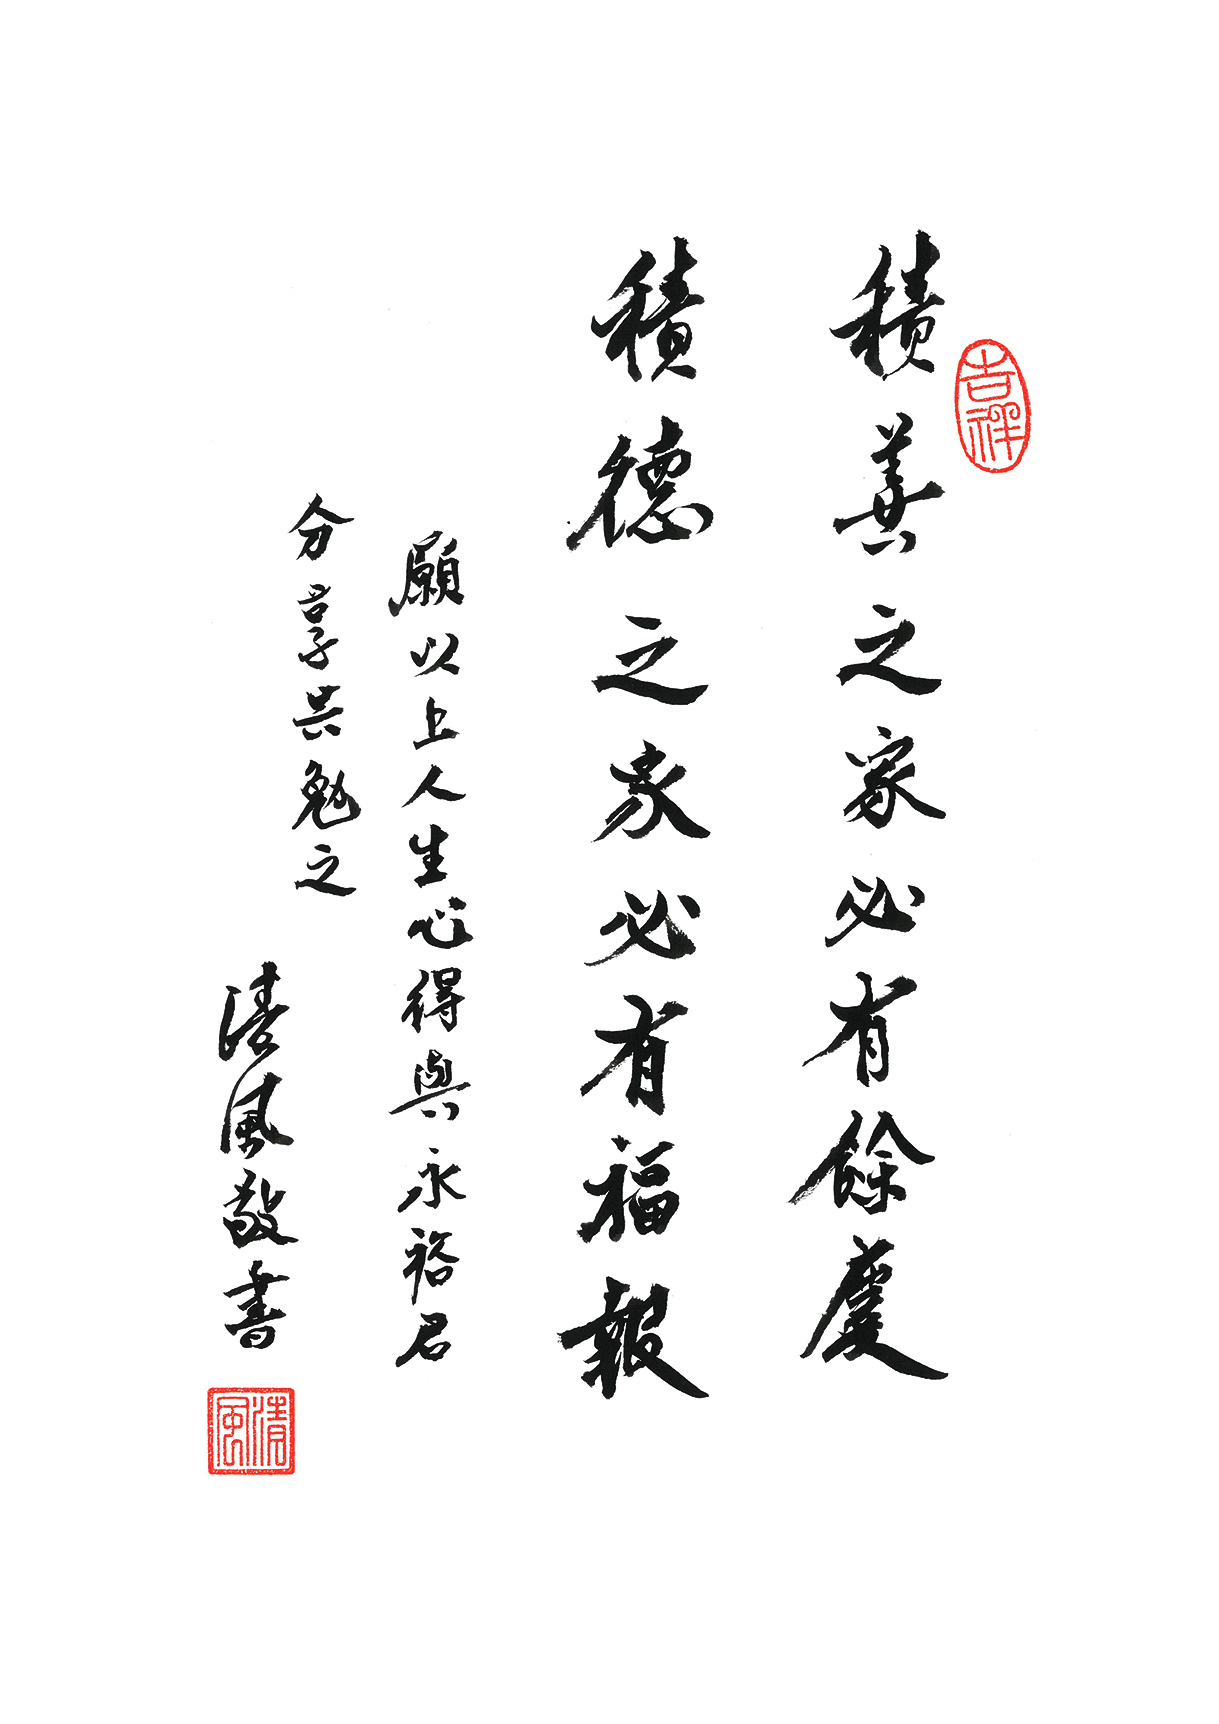 吉祥
積善之家必有餘慶
積德之家必有福報
願以上人生心得與永裕君
分享共勉之
清風敬書
清風